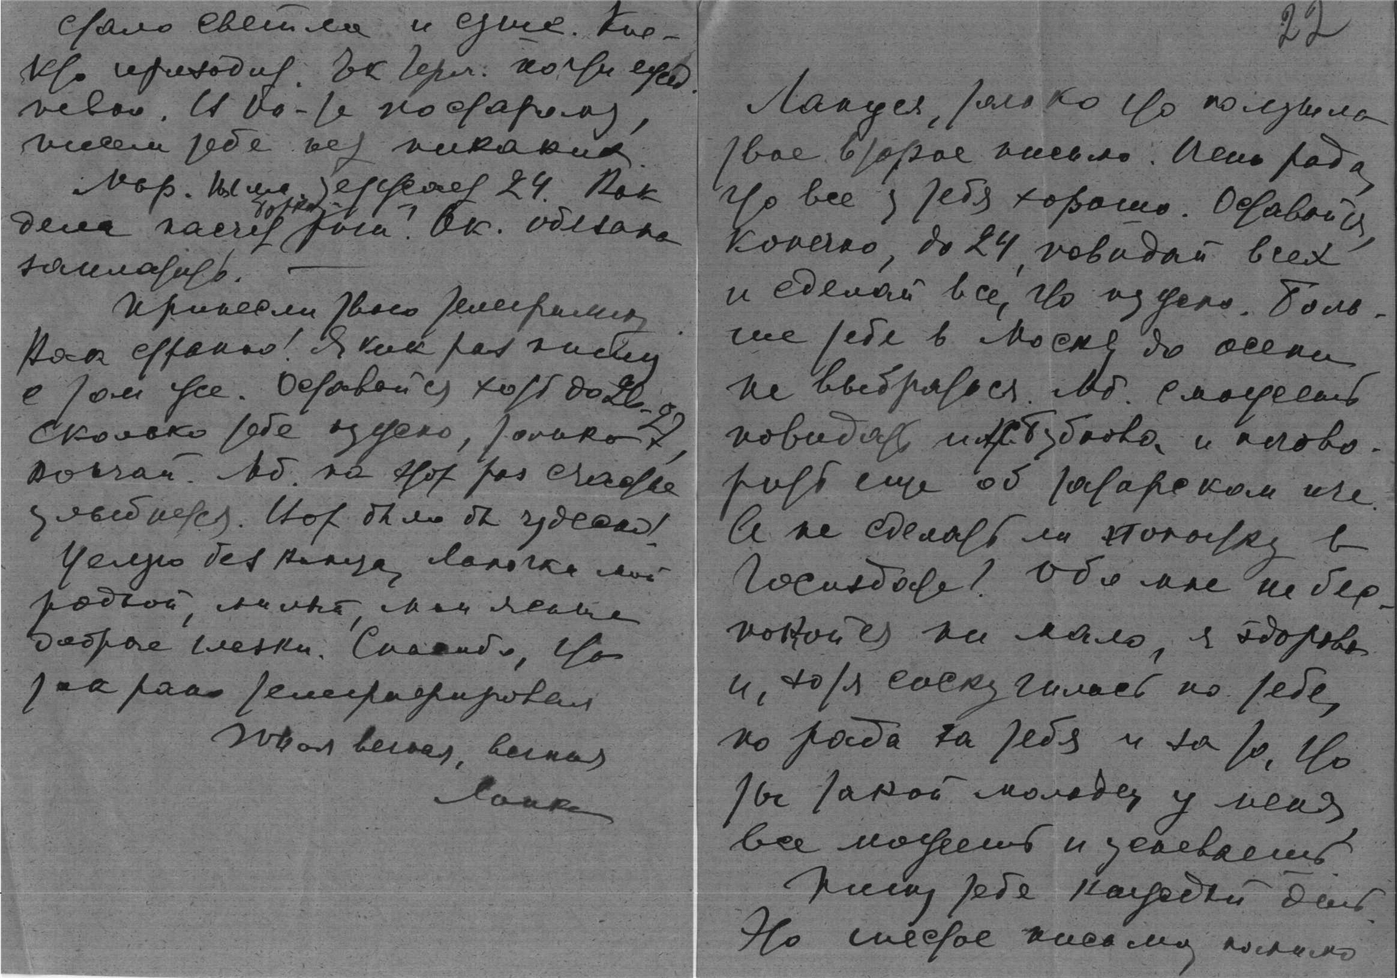 стало светло и суше. Кое-
кто приходит. Ек. Черн. почти ежед.
невно. И все-же по старому,
писем тебе нет никаких.
Мар. уезжает 24. Как
дела насчет Ек. обязана
заплатить.
Принесли твою телеграмму
Как странно! Я как раз пишу
о том же. Оставайся хоть до 26-27,
сколько тебе нужно, только
кончай. М.б. на этот раз счастье
улыбнется. Вот было бы чудесно!
Целую без конца, Лапочка мой
родной, милый, мои ясные
добрые глазки. Спасибо, что
так рано телеграфировал
Твоя верная, верная
Лапка
22
Лапуся, только что получила
твое второе письмо. Очень рада,
что все у тебя хорошо. Оставайся,
конечно, до 24, повидай всех
и сделай все, что нужно. Боль-
ше тебе в Москву до осени
не выбраться. М.б. сможешь
повидать и Бубнова и погово-
рить еще об татарском
А не сделать ли попытку в
Гослитиздате! Обо мне не бес-
покойся ни мало, я здорова
и, хотя соскучилась по тебе,
но рада за тебя и за то, что
ты такой молодец у меня,
все можешь и успеваешь
Пишу тебе каждый день.
Это шестое письмо, помимо